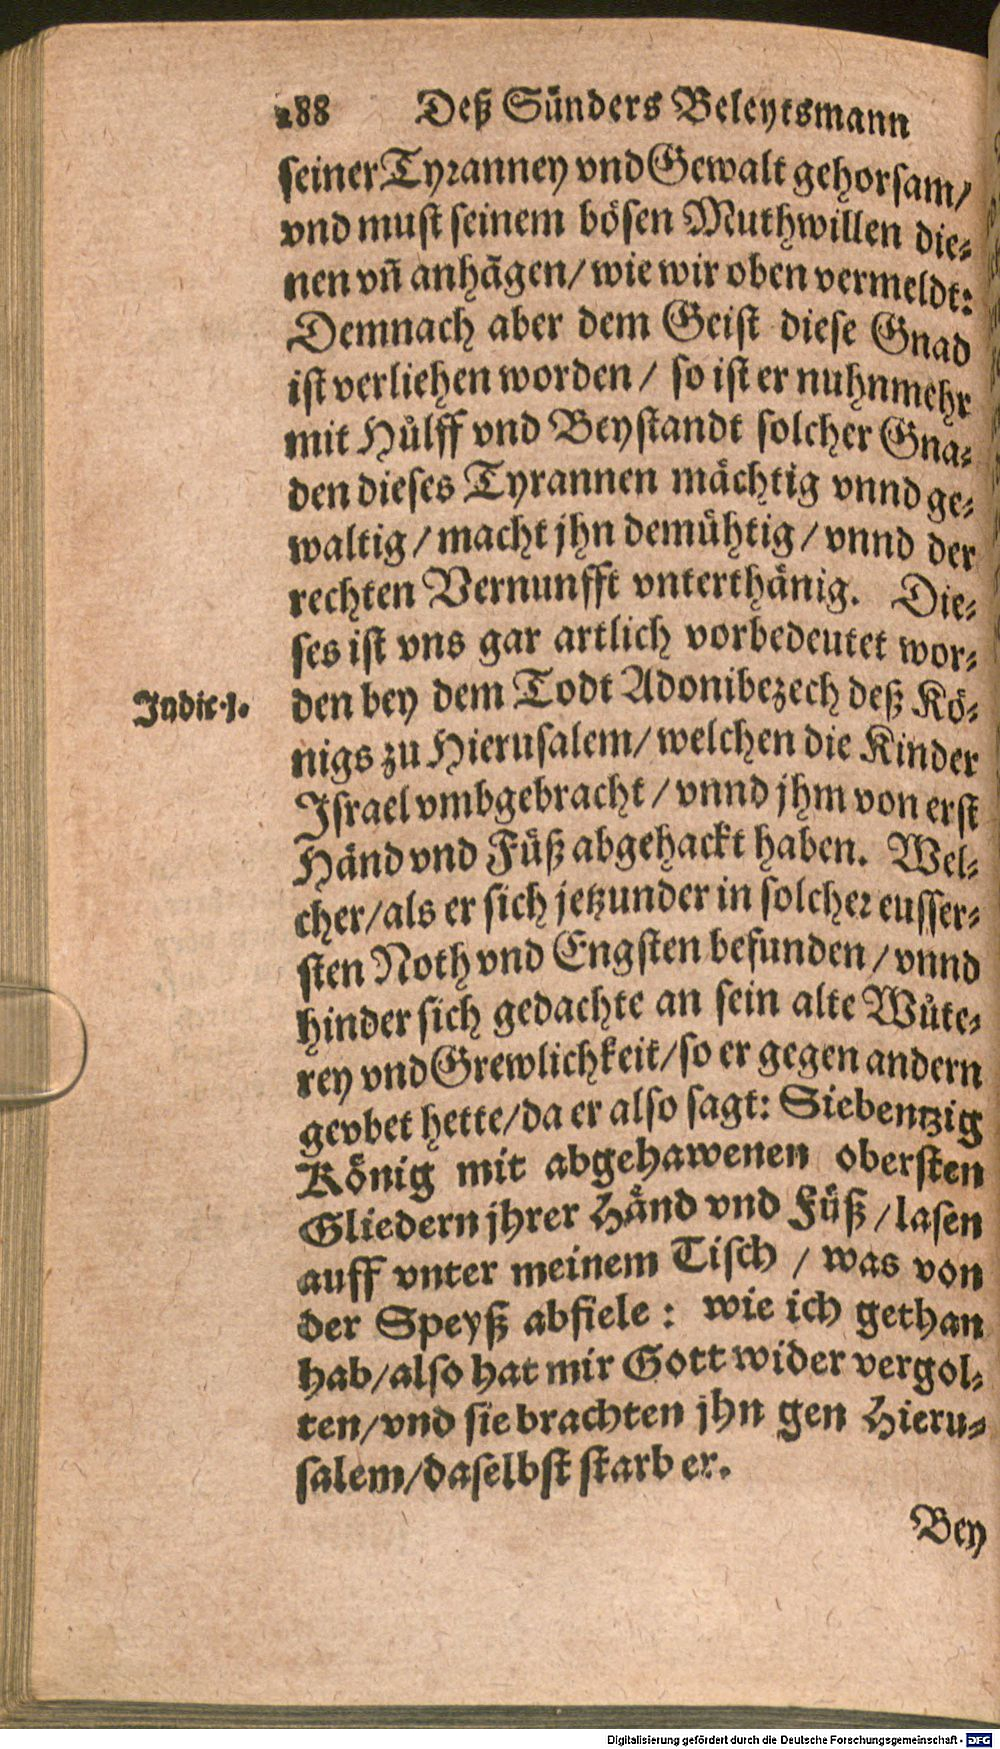 288 Deß Sünders Beleytsmann
seiner Tyranney vnd Gewalt gehorsam/
vnd must seinem bösen Muthwillen die⸗
nen vñ anhāgen/ wie wir oben vermeldt:
Demnach aber dem Geist diese Gnad
ist verliehen worden / so ist er nuhnmehr
mit Hůlff vnd Beystandt solcher Gna⸗
den dieses Tyrannen mächtig vnnd ge⸗
waltig / macht jhn demühtig / vnnd der
rechten Vernunfft vnterthänig. Die⸗
ses ist vns gar artlich vorbedeutet wor⸗
Judic. 1.
den bey dem Todt Adonibezech deß Kö⸗
nigs zu Hierusalem/ welchen die Kinder
Israel vmbgebracht / vnnd jhm von erst
Händ vnd Füß abgehackt haben. Wel⸗
cher/als er sich jetzunder in solcher eusser⸗
sten Noth vnd Engsten befunden / vnnd
hinder sich gedachte an sein alte Wůte⸗
rey vnd Grewlichkeit/so er gegen andern
gevbet hette/da er also sagt: Siebentzig
König mit abgehawenen obersten
Gliedern jhrer Händ vnd Füß / lasen
auff vnter meinem Tisch / was von
der Speyß abfiele : wie ich gethan
hab/also hat mir Gott wider vergol⸗
ten/vnd sie brachten jhn gen Hieru⸗
salem/daselbst starb er.
Bey
Digitalisierung gefördert durch die Deutsche Forschungsgemeinschaft - DFG